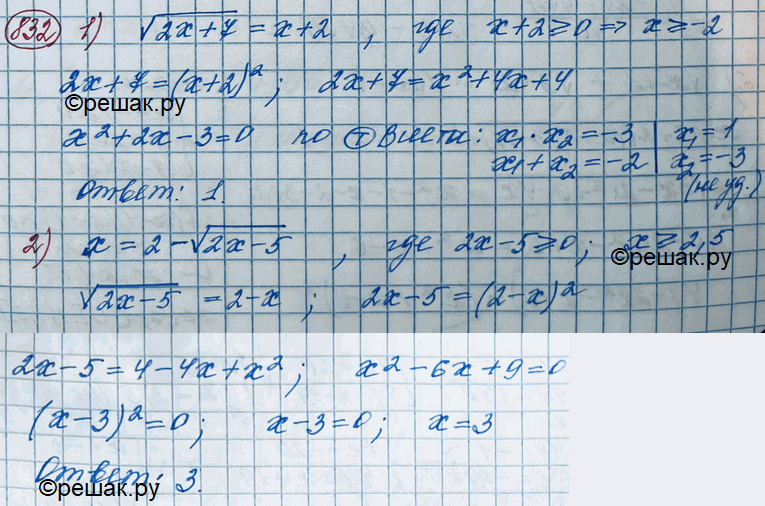 832 1) √(2x+7) = x+2 , где x+2≥0 ⇒ x≥-2
2x+7=(x+2)²; 2x+7=x²+4x+4
©решак.ру
x²+2x-3=0 по Т Виета: x₁·x₂=-3 | x₁=1
x₁+x₂=-2 | x₂=-3
Ответ: 1. (не уд.)
2) x=2-√(2x-5) , где 2x-5≥0; x≥2,5
©решак.ру
√(2x-5) = 2-x ; 2x-5=(2-x)²
2x-5=4-4x+x²; x²-6x+9=0
(x-3)²=0; x-3=0; x=3
Ответ: 3.
©решак.ру